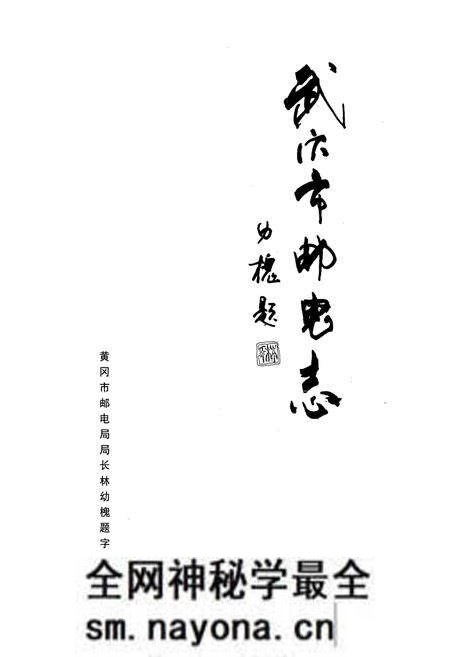 武穴市邮电志
幼槐题
黄冈市邮电局局长林幼槐题字
全网神秘学最全
sm.nayona.cn